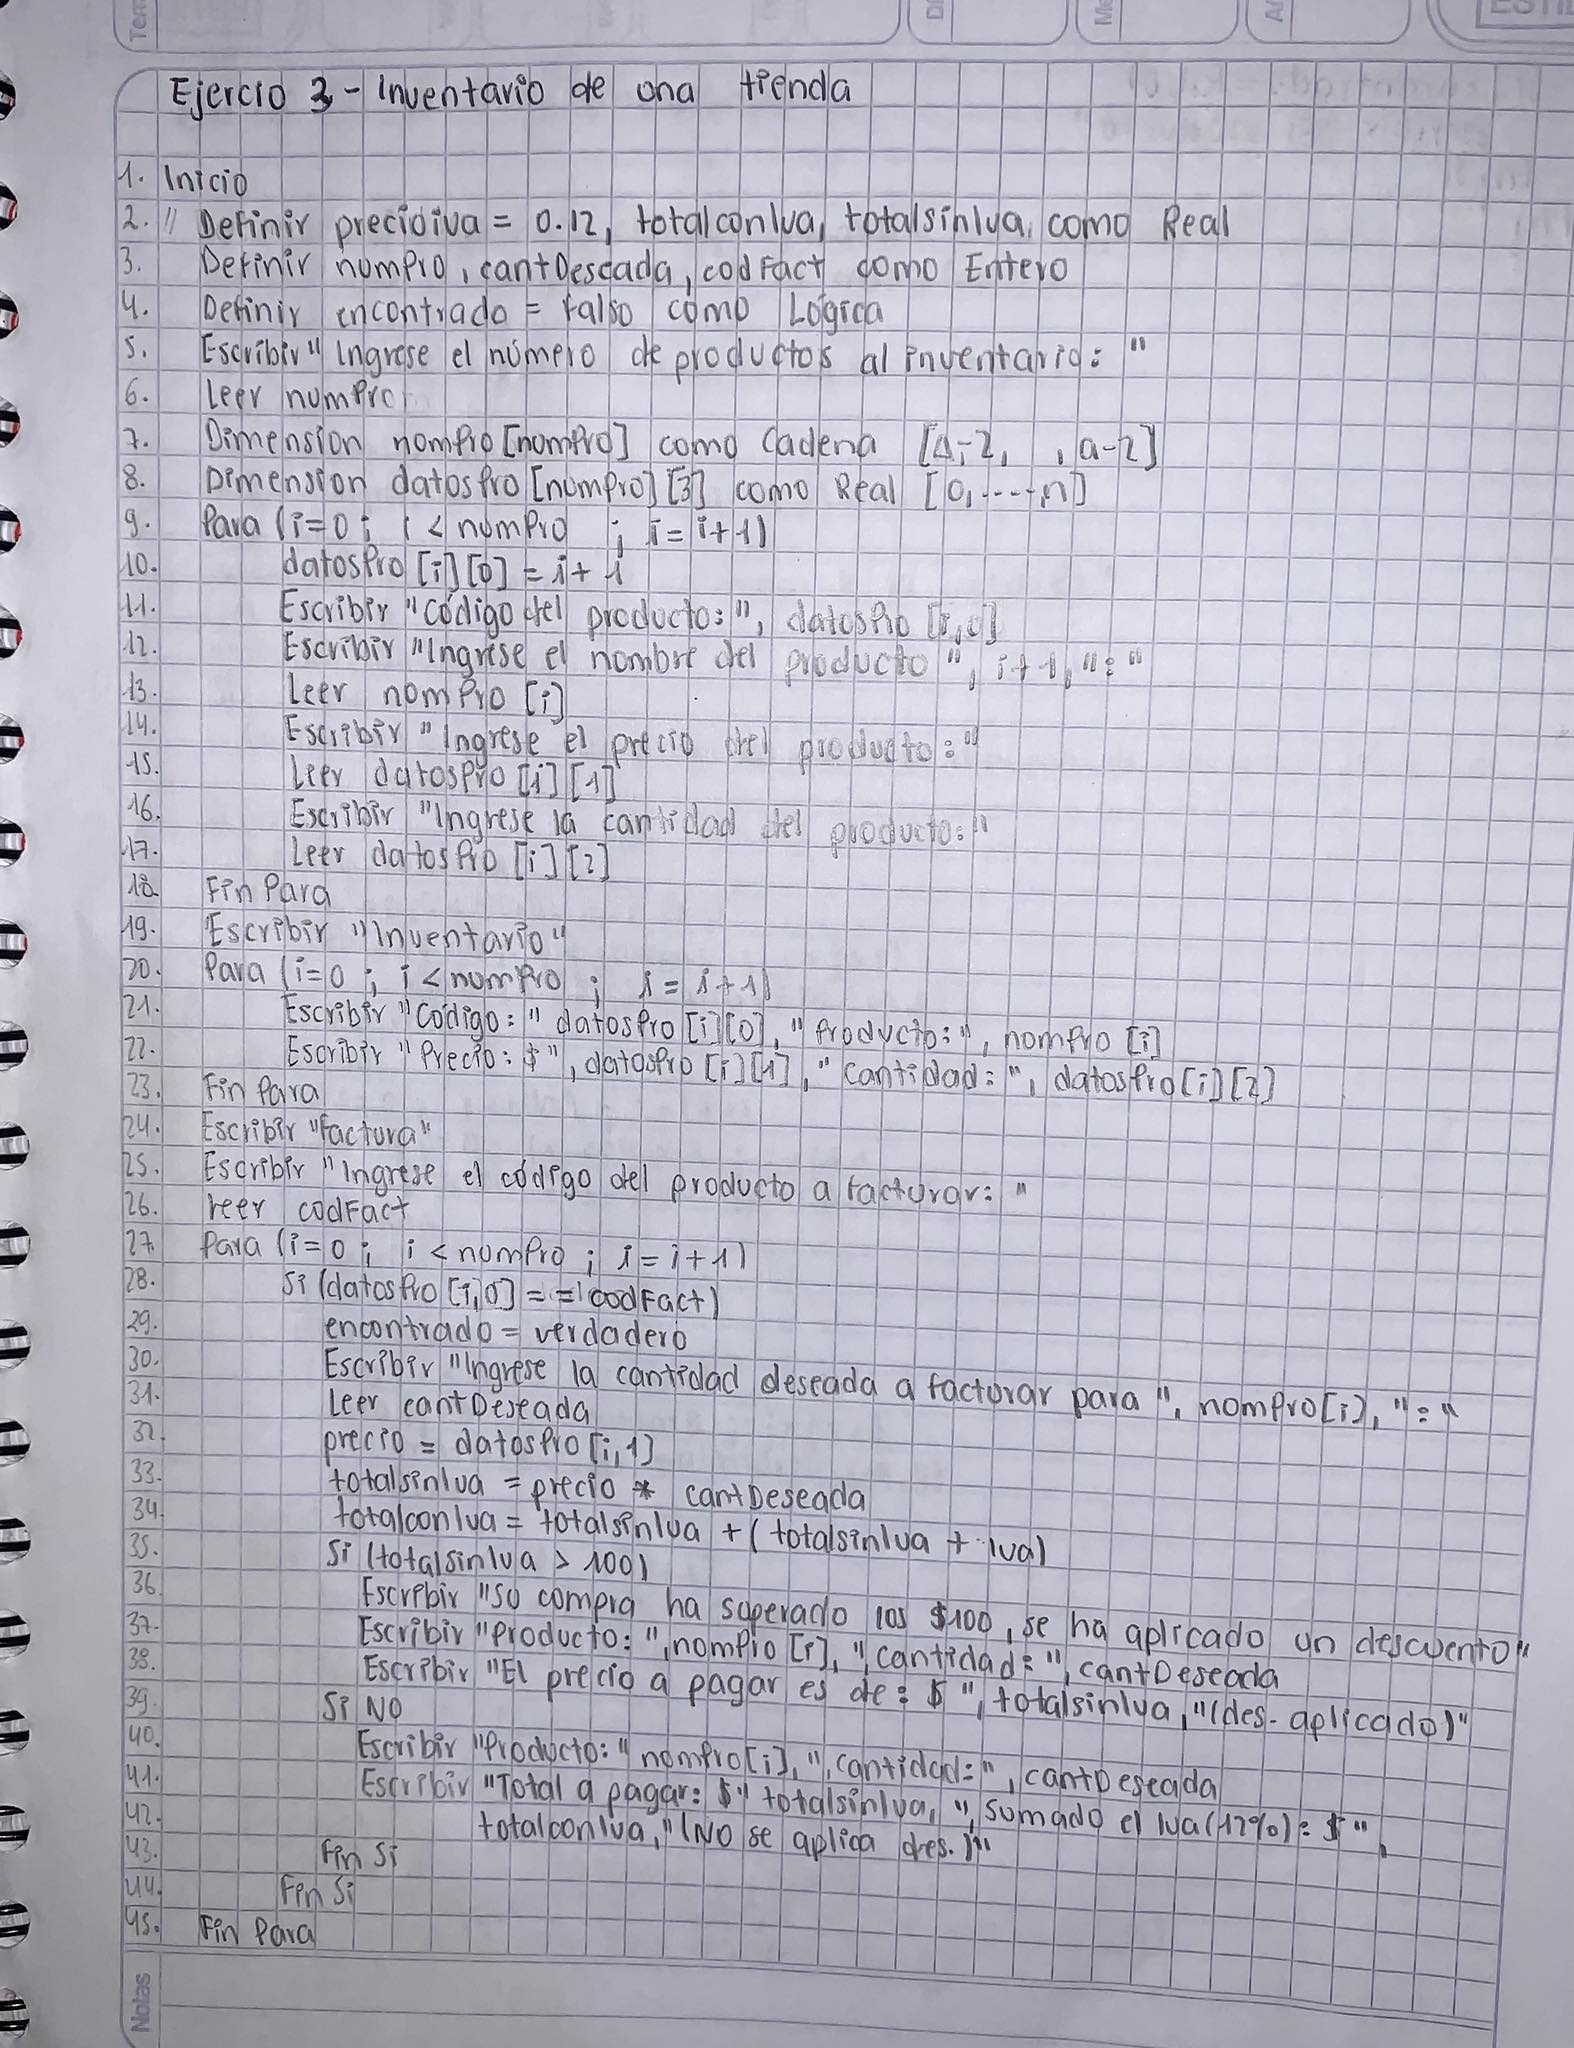 Ejercio 3 - Inventario de una tienda
1. Inicio
2. " Definir precioiva = 0.12, totalconIva, totalsinIva, como Real
3. Definir numPro, cantDeseada, codFact como Entero
4. Definir encontrado = falso como Lógica
5. Escribir "Ingrese el número de productos al inventario: "
6. Leer numPro
7. Dimension nomPro [numPro] como Cadena [A-Z, , a-z]
8. Dimension datosPro [numPro][3] como Real [0,----,n]
9. Para (i=0 ; i < numPro ; i = i+1)
10. datosPro [i][0] = i+1
11. Escribir "Código del producto:", datosPro [i,0]
12. Escribir "Ingrese el nombre del producto", i+1, ":"
13. Leer nomPro [i]
14. Escribir "Ingrese el precio del producto:"
15. Leer datosPro [i][1]
16. Escribir "Ingrese la cantidad del producto:"
17. Leer datosPro [i][2]
18. Fin Para
19. Escribir "Inventario"
20. Para (i=0 ; i < numPro ; i = i+1)
21. Escribir "Código:" datosPro [i][0], "Producto:", nomPro [i]
22. Escribir "Precio: $", datosPro [i][1], "cantidad: ", datosPro[i][2]
23. Fin Para
24. Escribir "Factura"
25. Escribir "Ingrese el código del producto a facturar: "
26. Leer codFact
27. Para (i=0 ; i < numPro ; i = i+1)
28. Si (datosPro [i,0] == codFact)
29. encontrado = verdadero
30. Escribir "Ingrese la cantidad deseada a facturar para ", nomPro[i], ":"
31. Leer cantDeseada
32. precio = datosPro [i,1]
33. totalsinIva = precio * cantDeseada
34. totalconIva = totalsinIva + (totalsinIva + Iva)
35. Si (totalsinIva > 100)
36. Escribir "Su compra ha superado los $100, se ha aplicado un descuento"
37. Escribir "Producto: ", nomPro [i], ", cantidad: ", cantDeseada
38. Escribir "El precio a pagar es de: $ ", totalsinIva, "(des. aplicado)"
39. Si NO
40. Escribir "Producto: " nomPro[i], ", cantidad:", cantDeseada
41. Escribir "Total a pagar: $" totalsinIva, ", sumado el Iva(12%): $ ",
42. totalconIva, "(No se aplica des.)"
43. Fin Si
44. Fin Si
45. Fin Para
Notas